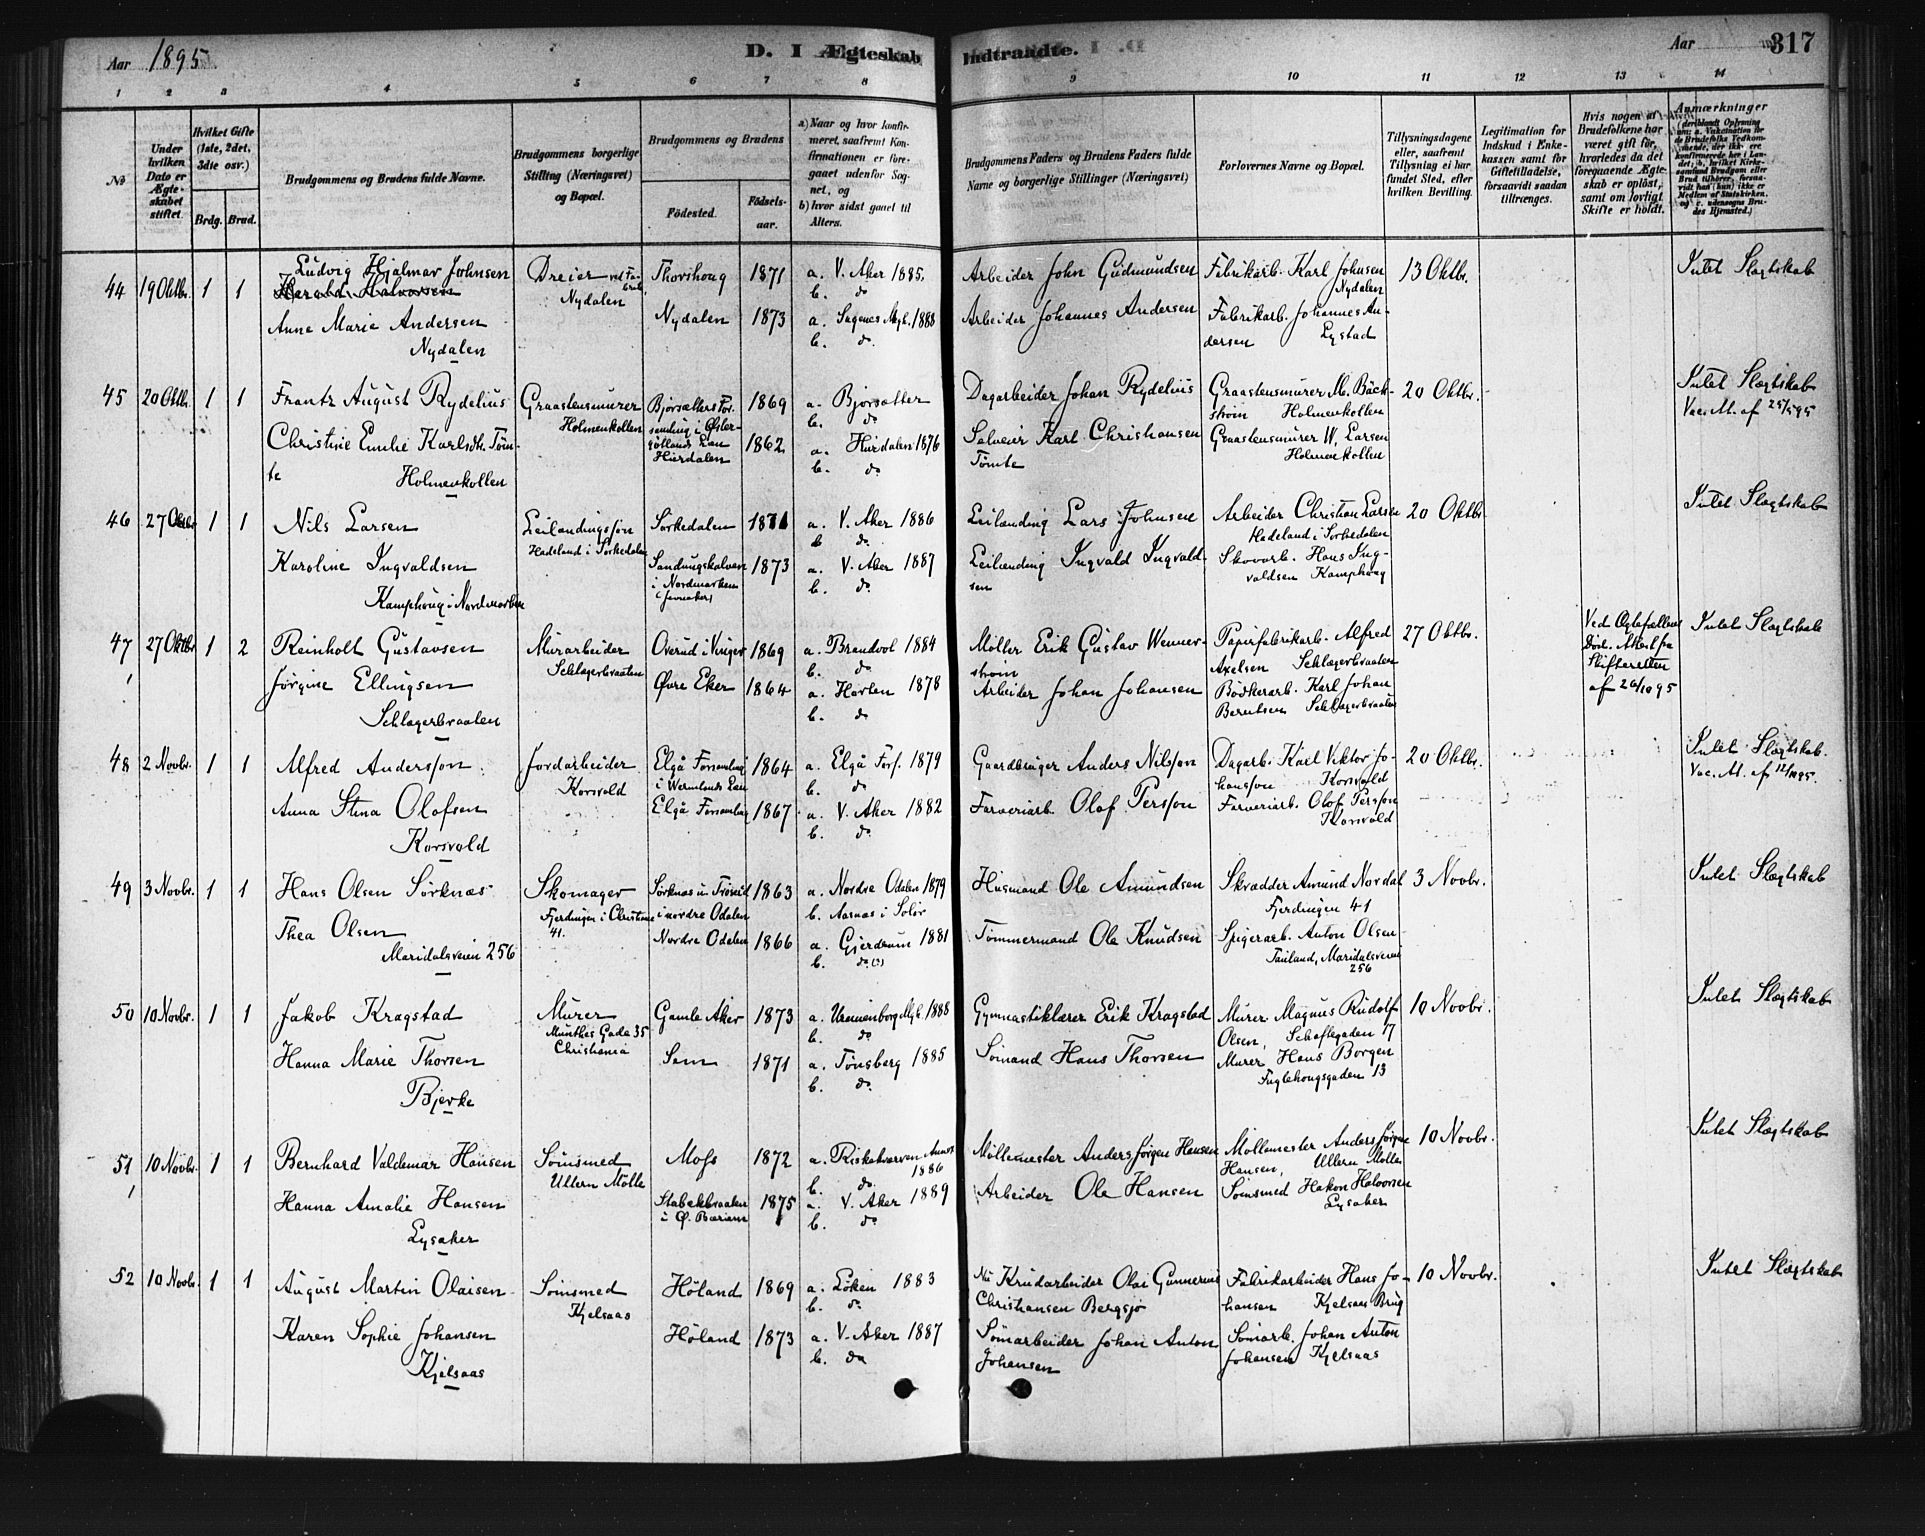 Aar 1895.
D. I Ægteskab Indtraadte.
Aar 317
1 2 3 4 5 6 7 8 9 10 11 12 13 14
No
Under hvilken Dato er Ægteskabet stiftet.
Hvilket Gifte (1ste, 2det, 3die osv.)
Brdg. Brud.
Brudgommens og Brudens fulde Navne.
Brudgommens borgerlige Stilling (Næringsvei) og Bopæl.
Brudgommens og Brudens
Fødested.
Fødselsaar.
a) Naar og hvor konfirmeret, saafremt Konfirmationen er foregaaet udenfor Sognet, og
b) hvor sidst gaaet til Alters.
Brudgommens Faders og Brudens Faders fulde Navne og borgerlige Stillinger (Næringsvei)
Forlovernes Navne og Bopæl.
Tillysningsdagene eller, saafremt Tillysning ei har fundet Sted, efter hvilken Bevilling.
Legitimation for Indskud i Enkekassen samt for Giftetilladelse, forsaavidt saadan tiltrænges.
Hvis nogen af Brudefolkene har været gift før, hvorledes da det foregaaende Ægteskab er opløst, samt om lovligt Skifte er holdt.
Anmærkninger
44 19 Oktbr. 1 1
Ludvig Hjalmar Johnsen
Anne Marie Andersen
Nydalen
Dreier
Nydalen
Thorshoug 1871 a. V. Aker 1885.
b. do
Nydalen 1873 a. Sagenes Mgh. 1888
b. do
Arbeider John Gudmundsen
Arbeider Johannes Andersen
Fabrikarb. Karl Johnsen
Nydalen
Fabrikarb. Johannes An-
dersen Lystad
13 Oktbr.
Intet Slægtskab
45 20 Oktbr. 1 1
Frantz August Rydelius
Christine Emilie Karlsdt. Töm-
te Holmenkollen
Graastensmurer
Holmenkollen
Bjorsæters For-
samling i Øster-
götlands Län
Hurdalen
1869 a. Bjorsætter
b. do
1862 a. Hurdalen 1876
b. do
Dagarbeider Johan Rydelius
Selveier Karl Christiansen
Tömte
Graastensmurer M. Bäck-
ström Holmenkollen
Graastensmurer W. Larsen
Holmenkollen
20 Oktbr.
Intet Slægtskab
Vac. At. af 25/5 95
46 27 Oktbr 1 1
Nils Larsen
Karoline Ingvaldsen
Kamphoug i Nordmarken
Leilændingssøn
Hadeland i Sørkedalen
Sørkedalen 1871 a. V. Aker 1886
b do
Sandungskalven
i Nordmarken
(Jevnaker)
1873 a. V. Aker 1887
b. do
Leilænding Lars Johnsen
Leilænding Ingvald Ingvald-
sen
Arbeider Christian Larsen
Hadeland i Sørkedalen
Skovarb. Hans Ing-
valdsen Kamphoug
20 Oktbr
Intet Slægtskab
47 27 Oktbr 1 2
Reinholt Gustavsen
Jørgine Ellingsen
Schlagerbraaten
Murarbeider
Schlagerbraaten
Overud i Vinger 1869 a. Brandvol 1884
b. do
Øvre Eker 1864 a. Horten 1878
b. do
Møller Erik Gustav Wenner-
strøm
Arbeider Johan Johansen
Papirfabrikarb. Alfred
Axelsen Schlagerbraaten
Bødkerarb. Karl Johan
Berntsen Schlagerbraaten
27 Oktbr.
Ved Ægtefællens
Død. Attest fra
Skifteretten
af 26/10 95
Intet Slægtskab
48 2 Novbr. 1 1
Alfred Andersson
Anna Stina Olofsen
Korsvold
Jordarbeider
Korsvold
Elgå Forsamling
i Wermlands Län
1864 a. Elgå Fors. 1879
b. do
Elgå Forsamling 1867 a. V. Aker 1882
b. do
Gaardbruger Anders Nilsson
Farveriarb. Olof Persson
Dagarb. Karl Viktor Jo-
hansson Korsvold
Farveriarb. Olof Persson
Korsvold
20 Oktbr.
Intet Slægtskab.
Vac. At. af 12/10 95.
49 3 Novbr. 1 1
Hans Olsen Sörknæs
Thea Olsen
Maridalsveien 256
Skomager
Fjerdingen i Christiania
41.
Sörknæs u. Trøseid
i nordre Odalen
1863 a. Nordre Odalen 1879
b. Aasnæs i Solör
Nordre Odalen 1866 a. Gjerdrum 1881
b. do (?)
Husmand Ole Amundsen
Tømmermand Ole Knudsen
Skrædder Amund Nordal
Fjerdingen 41
Spigerarb. Anton Olsen
Tailand, Maridalsveien
256
3 Novbr.
Intet Slægtskab
50 10 Novbr. 1 1
Jakob Kragstad
Hanna Marie Thorsen
Bjerke
Murer
Munthes Gade 35
Christiania
Gamle Aker 1873 a. Uranienborg Mgh. 1888
b. do
Sem 1871 a. Tønsberg 1885
b. do
Gymnastiklærer Erik Kragstad
Sömand Hans Thorsen
Murer Magnus Rudolf
Olsen, Schaflegaden 17
Murer Hans Borgen
Fuglehougsgaden 13
10 Novbr.
Intet Slægtskab
51 10 Novbr. 1 1
Bernhard Valdemar Hansen
Hanna Amalie Hansen
Lysaker
Sömsmed
Ullern Mølle
Moss 1872 a. Riskatværven
1886
b. do
Stabekbraaten
i Ø. Bærum
1875 a. V. Aker 1889
b. do
Møllemester Anders Jørgen Hansen
Arbeider Ole Hansen
Møllemester Anders Jørgen
Hansen, Ullern Mølle
Sömsmed Hakon Halvorsen
Lysaker
10 Novbr.
Intet Slægtskab
52 10 Novbr. 1 1
August Martin Olaisen
Karen Sophie Johansen
Kjelsaas
Sömsmed
Kjelsaas
Höland 1869 a. Löken 1883
b. do
Höland 1873 a. V. Aker 1887
b. do
Nu Krudarbeider Olai Gunnerius
Christiansen Bergsjø
Sömarbeider Johan Anton
Johansen
Fabrikarbeider Hans Jo-
hansen Kjelsaas Brug
Sömarb. Johan Anton
Johansen Kjelsaas
10 Novbr.
Intet Slægtskab